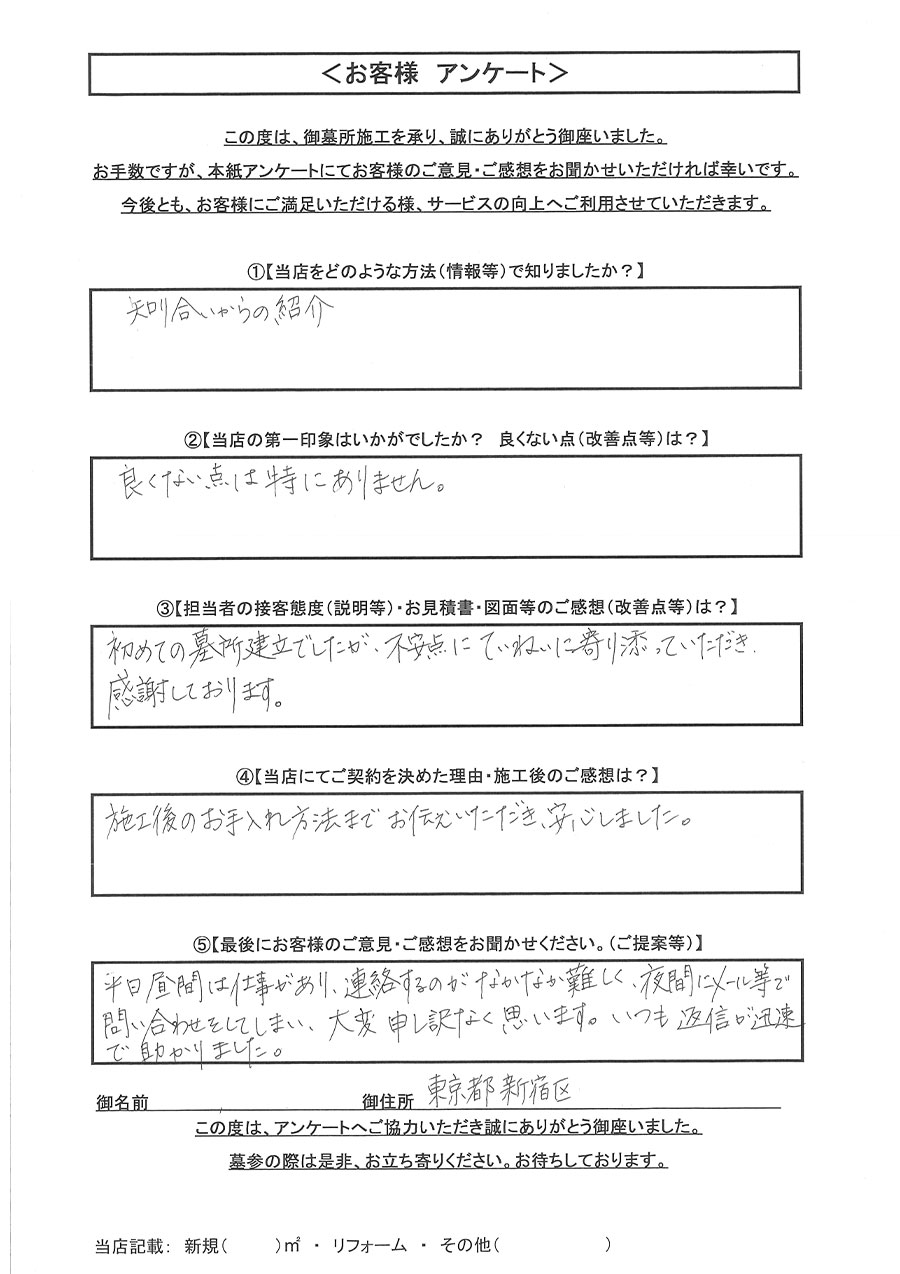 ＜お客様　アンケート＞
この度は、御墓所施工を承り、誠にありがとう御座いました。
お手数ですが、本紙アンケートにてお客様のご意見・ご感想をお聞かせいただければ幸いです。
今後とも、お客様にご満足いただける様、サービスの向上へご利用させていただきます。
①【当店をどのような方法（情報等）で知りましたか？】
知り合いからの紹介
②【当店の第一印象はいかがでしたか？　良くない点（改善点等）は？】
良くない点は特にありません。
③【担当者の接客態度（説明等）・お見積書・図面等のご感想（改善点等）は？】
初めての墓所建立でしたが、不安点にていねいに寄り添っていただき、
感謝しております。
④【当店にてご契約を決めた理由・施工後のご感想は？】
施工後のお手入れ方法までお伝えいただき、安心しました。
⑤【最後にお客様のご意見・ご感想をお聞かせください。（ご提案等）】
平日昼間は仕事があり、連絡するのがなかなか難しく、夜間にメール等で
問い合わせをしてしまい、大変申し訳なく思います。いつも返信が迅速
で助かりました。
御名前　御住所　東京都新宿区
この度は、アンケートへご協力いただき誠にありがとう御座いました。
墓参の際は是非、お立ち寄りください。お待ちしております。
当店記載：　新規（　　　）㎡　・　リフォーム　・　その他（　　　　　　）